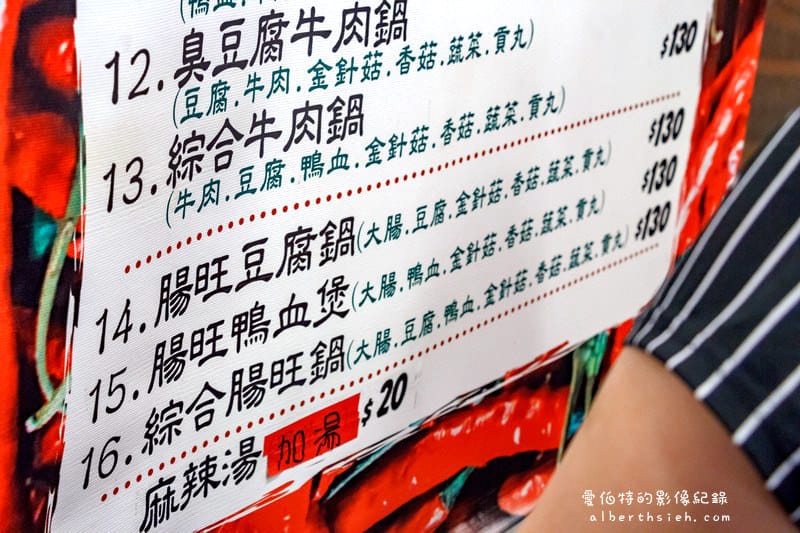 (鴨血.
12. 臭豆腐牛肉鍋
(豆腐.牛肉.金針菇.香菇.蔬菜.貢丸)
13. 綜合牛肉鍋 $130
(牛肉.豆腐.鴨血.金針菇.香菇.蔬菜.貢丸)
14. 腸旺豆腐鍋(大腸.豆腐.金針菇.香菇.蔬菜.貢丸) $130
15. 腸旺鴨血煲(大腸.鴨血.金針菇.香菇.蔬菜.貢丸) $130
16. 綜合腸旺鍋(大腸.豆腐.鴨血.金針菇.香菇.蔬菜.貢丸) $130
麻辣湯 加湯 $20
愛伯特的影像紀錄
alberthsieh.com